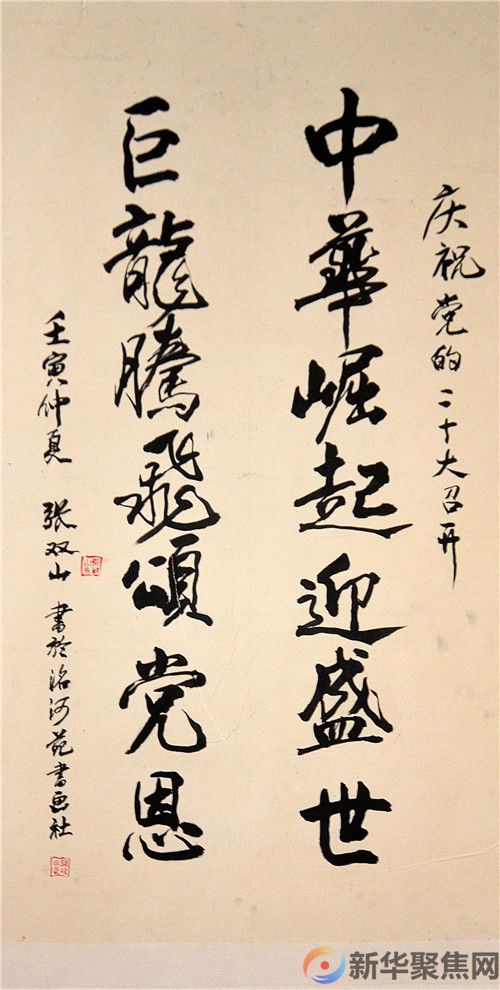 庆祝党的二十大召开
中華崛起迎盛世
巨龍騰飛頌党恩
壬寅仲夏 张双山 書於洺河苑書画社
新华聚焦网